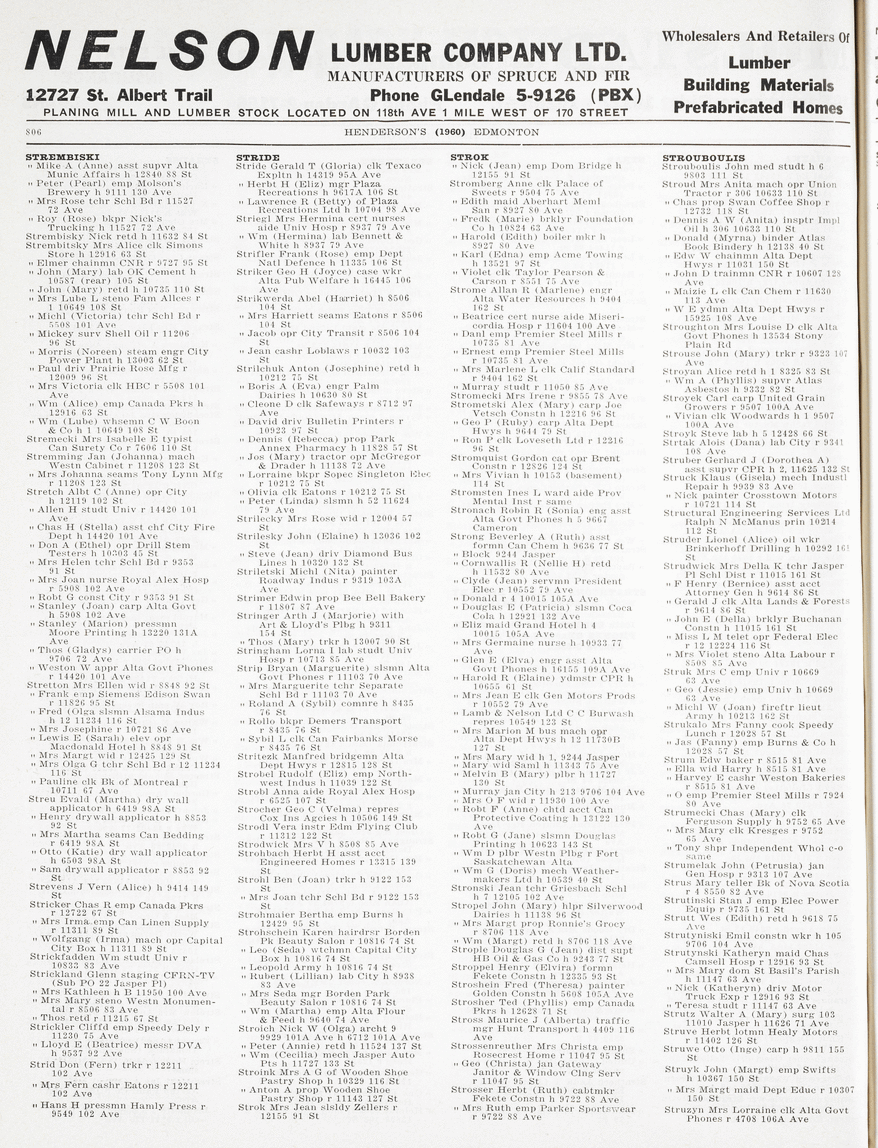 NELSON LUMBER COMPANY LTD.
MANUFACTURERS OF SPRUCE AND FIR
12727 St. Albert Trail Phone GLendale 5-9126 (PBX)
PLANING MILL AND LUMBER STOCK LOCATED ON 118th AVE 1 MILE WEST OF 170 STREET
Wholesalers And Retailers Of
Lumber
Building Materials
Prefabricated Homes
806 HENDERSON'S (1960) EDMONTON
STREMBISKI
" Mike A (Anne) asst supvr Alta
Munic Affairs h 12840 88 St
" Peter (Pearl) emp Molson's
Brewery h 9111 130 Ave
" Mrs Rose tchr Schl Bd r 11527
72 Ave
" Roy (Rose) bkpr Nick's
Trucking h 11527 72 Ave
Strembisky Nick retd h 11632 84 St
Strembitsky Mrs Alice clk Simons
Store h 12916 63 St
" Elmer chainmn CNR r 9727 95 St
" John (Mary) lab OK Cement h
10587 (rear) 105 St
" John (Mary) retd h 10735 110 St
" Mrs Lube L steno Fam Allces r
1 10649 108 St
" Michl (Victoria) tchr Schl Bd r
5508 101 Ave
" Mickey surv Shell Oil r 11206
96 St
" Morris (Noreen) steam engr City
Power Plant h 13003 62 St
" Paul driv Prairie Rose Mfg r
12009 96 St
" Mrs Victoria clk HBC r 5508 101
Ave
" Wm (Alice) emp Canada Pkrs h
12916 63 St
" Wm (Lube) whsemn C W Boon
& Co h 1 10649 108 St
Stremecki Mrs Isabelle E typist
Can Surety Co r 7606 110 St
Stremming Jan (Johanna) mach
Westn Cabinet r 11208 123 St
" Mrs Johanna seams Tony Lynn Mfg
r 11208 123 St
Stretch Albt C (Anne) opr City
h 12119 102 St
" Allen H studt Univ r 14420 101
Ave
" Chas H (Stella) asst chf City Fire
Dept h 14420 101 Ave
" Don A (Ethel) opr Drill Stem
Testers h 10303 45 St
" Mrs Helen tchr Schl Bd r 9353
91 St
" Mrs Joan nurse Royal Alex Hosp
r 5908 102 Ave
" Robt G const City r 9353 91 St
" Stanley (Joan) carp Alta Govt
h 5908 102 Ave
" Stanley (Marion) pressmn
Moore Printing h 13220 131A
Ave
" Thos (Gladys) carrier PO h
9706 72 Ave
" Weston W appr Alta Govt Phones
r 14420 101 Ave
Stretton Mrs Ellen wid r 8848 92 St
" Frank emp Siemens Edison Swan
r 11826 95 St
" Fred (Olga slsmn Alsama Indus
h 12 11234 116 St
" Mrs Josephine r 10721 86 Ave
" Lewis E (Sarah) elev opr
Macdonald Hotel h 8848 91 St
" Mrs Margt wid r 12425 129 St
" Mrs Olga G tchr Schl Bd r 12 11234
116 St
" Pauline clk Bk of Montreal r
10711 67 Ave
Streu Evald (Martha) dry wall
applicator h 6419 98A St
" Henry drywall applicator h 8853
92 St
" Mrs Martha seams Can Bedding
r 6419 98A St
" Otto (Katie) dry wall applicator
h 6503 98A St
" Sam drywall applicator r 8853 92
St
Strevens J Vern (Alice) h 9414 149
St
Stricker Chas R emp Canada Pkrs
r 12722 67 St
" Mrs Irma emp Can Linen Supply
r 11311 89 St
" Wolfgang (Irma) mach opr Capital
City Box h 11311 89 St
Strickfadden Wm studt Univ r
10833 83 Ave
Strickland Glenn staging CFRN-TV
(Sub PO 22 Jasper Pl)
" Mrs Kathleen h B 11950 100 Ave
" Mrs Mary steno Westn Monumen-
tal r 8506 83 Ave
" Thos retd r 11215 67 St
Strickler Cliffd emp Speedy Dely r
11230 75 Ave
" Lloyd E (Beatrice) messr DVA
h 9537 92 Ave
Strid Don (Fern) trkr r 12211
102 Ave
" Mrs Fern cashr Eatons r 12211
102 Ave
" Hans H pressmn Hamly Press r
9549 102 Ave
STRIDE
Stride Gerald T (Gloria) clk Texaco
Expltn h 14319 95A Ave
" Herbt H (Eliz) mgr Plaza
Recreations h 9617A 106 St
" Lawrence R (Betty) of Plaza
Recreations Ltd h 10704 98 Ave
Striegl Mrs Hermina cert nurses
aide Univ Hosp r 8937 79 Ave
" Wm (Hermina) lab Bennett &
White h 8937 79 Ave
Strifler Frank (Rose) emp Dept
Natl Defence h 11335 106 St
Striker Geo H (Joyce) case wkr
Alta Pub Welfare h 16445 106
Ave
Strikwerda Abel (Harriet) h 8506
104 St
" Mrs Harriett seams Eatons r 8506
104 St
" Jacob opr City Transit r 8506 104
St
" Jean cashr Loblaws r 10032 103
St
Strilchuk Anton (Josephine) retd h
10212 75 St
" Boris A (Eva) engr Palm
Dairies h 10630 80 St
" Cleone D clk Safeways r 8712 97
Ave
" David driv Bulletin Printers r
10923 97 St
" Dennis (Rebecca) prop Park
Annex Pharmacy h 11828 57 St
" Jos (Mary) tractor opr McGregor
& Drader h 11138 72 Ave
" Lorraine bkpr Sopec Singleton Elec
r 10212 75 St
" Olivia clk Eatons r 10212 75 St
" Peter (Linda) slsmn h 52 11624
79 Ave
Strilecky Mrs Rose wid r 12004 57
St
Strilesky John (Elaine) h 13036 102
St
" Steve (Jean) driv Diamond Bus
Lines h 10320 132 St
Striletski Michl (Nita) painter
Roadway Indus r 9319 103A
Ave
Strimer Edwin prop Bee Bell Bakery
r 11807 87 Ave
Stringer Arth J (Marjorie) with
Art & Lloyd's Plbg h 9311
154 St
" Thos (Mary) trkr h 13007 90 St
Stringham Lorna I lab studt Univ
Hosp r 10713 85 Ave
Strip Bryan (Marguerite) slsmn Alta
Govt Phones r 11103 70 Ave
" Mrs Marguerite tchr Separate
Schl Bd r 11103 70 Ave
" Roland A (Sybil) comnre h 8435
76 St
" Rollo bkpr Demers Transport
r 8435 76 St
" Sybil L clk Can Fairbanks Morse
r 8435 76 St
Stritezk Manfred bridgemn Alta
Dept Hwys r 12815 128 St
Strobel Rudolf (Eliz) emp North-
west Indus h 11039 122 St
Strobl Anna aide Royal Alex Hosp
r 6525 107 St
Strocher Geo C (Velma) repres
Cox Ins Agcies h 10506 149 St
Strodl Vera instr Edm Flying Club
r 11312 122 St
Strodwick Mrs V h 8508 85 Ave
Strohbach Herbt H asst acct
Engineered Homes r 13315 139
St
Strohl Ben (Joan) trkr h 9122 153
St
" Mrs Joan tchr Schl Bd r 9122 153
St
Strohmaier Bertha emp Burns h
12429 95 St
Strohschein Karen hairdrsr Borden
Pk Beauty Salon r 10816 74 St
" Leo (Seda) wtchmn Capital City
Box h 10816 74 St
" Leopold Army h 10816 74 St
" Rubert (Lillian) lab City h 8938
83 Ave
" Mrs Seda mgr Borden Park
Beauty Salon r 10816 74 St
" Wm (Martha) emp Alta Flour
& Feed h 9640 74 Ave
Stroich Nick W (Olga) archt 9
9929 101A Ave h 6712 101A Ave
" Peter (Annie) retd h 11524 137 St
" Wm (Cecilia) mech Jasper Auto
Pts h 11727 133 St
Stroink Mrs A G of Wooden Shoe
Pastry Shop h 10329 116 St
" Anton A prop Wooden Shoe
Pastry Shop r 11143 127 St
Strok Mrs Jean slsldy Zellers r
12155 91 St
STROK
" Nick (Jean) emp Dom Bridge h
12155 91 St
Stromberg Anne clk Palace of
Sweets r 9504 75 Ave
" Edith maid Aberhart Meml
San r 8927 80 Ave
" Fredk (Marie) brklyr Foundation
Co h 10824 63 Ave
" Harold (Edith) boiler mkr h
8927 80 Ave
" Karl (Edna) emp Acme Towing
h 13521 97 St
" Violet clk Taylor Pearson &
Carson r 8551 75 Ave
Strome Allan R (Marlene) engr
Alta Water Resources h 9404
162 St
" Beatrice cert nurse aide Miseri-
cordia Hosp r 11604 100 Ave
" Danl emp Premier Steel Mills r
10735 81 Ave
" Ernest emp Premier Steel Mills
r 10735 81 Ave
" Mrs Marlene L clk Calif Standard
r 9404 162 St
" Murray studt r 11050 85 Ave
Stromecki Mrs Irene r 9855 78 Ave
Strometski Alex (Mary) carp Joe
Vetsch Constn h 12216 96 St
" Geo P (Ruby) carp Alta Dept
Hwys h 9644 79 St
" Ron P clk Loveseth Ltd r 12216
96 St
Stromquist Gordon cat opr Brent
Constn r 12826 124 St
" Mrs Vivian h 10153 (basement)
114 St
Stromsten Ines L ward aide Prov
Mental Inst r same
Stronach Robin R (Sonia) eng asst
Alta Govt Phones h 5 9667
Cameron
Strong Beverley A (Ruth) asst
formn Can Chem h 9636 77 St
" Block 9244 Jasper
" Cornwallis R (Nellie H) retd
h 11532 80 Ave
" Clyde (Jean) servmn President
Elec r 10552 79 Ave
" Donald r 4 10015 105A Ave
" Douglas E (Patricia) slsmn Coca
Cola h 12921 132 Ave
" Eliz maid Grand Hotel h 4
10015 105A Ave
" Mrs Germaine nurse h 10933 77
Ave
" Glen E (Elva) engr asst Alta
Govt Phones h 16155 109A Ave
" Harold R (Elaine) ydmstr CPR h
10655 61 St
" Mrs Jean E clk Gen Motors Prods
r 10552 79 Ave
" Lamb & Nelson Ltd C C Burwash
repres 10549 123 St
" Mrs Marion M bus mach opr
Alta Dept Hwys h 12 11730B
127 St
" Mrs Mary wid h 1, 9244 Jasper
" Mary wid Saml h 11343 75 Ave
" Melvin B (Mary) plbr h 11727
130 St
" Murray jan City h 213 9706 104 Ave
" Mrs O F wid r 11930 100 Ave
" Robt F (Anne) chtd acct Can
Protective Coating h 13122 130
Ave
" Robt G (Jane) slsmn Douglas
Printing h 10623 143 St
" Wm D plbr Westn Plbg r Fort
Saskatchewan Alta
" Wm G (Doris) mech Weather-
makers Ltd h 10539 40 St
Stronski Jean tchr Griesbach Schl
h 7 12105 102 Ave
Stropel John (Mary) hlpr Silverwood
Dairies h 11138 96 St
" Mrs Margt prop Ronnie's Grocy
r 8706 118 Ave
" Wm (Margt) retd h 8706 118 Ave
Strople Douglas G (Jean) dist supt
HB Oil & Gas Co h 9243 77 St
Stroppel Henry (Elvira) formn
Fekete Constn h 12335 93 St
Stroshein Fred (Theresa) painter
Golden Constn h 5608 105A Ave
Strosher Ted (Phyllis) emp Canada
Pkrs h 12628 71 St
Stross Maurice J (Alberta) traffic
mgr Hunt Transport h 4409 116
Ave
Strossenreuther Mrs Christa emp
Rosecrest Home r 11047 95 St
" Geo (Christa) jan Gateway
Janitor & Window Clng Serv
r 11047 95 St
Strosser Herbt (Ruth) cabtmkr
Fekete Constn h 9722 88 Ave
" Mrs Ruth emp Parker Sportswear
r 9722 88 Ave
STROUBOULIS
Strouboulis John med studt h 6
9803 111 St
Stroud Mrs Anita mach opr Union
Tractor r 306 10633 110 St
" Chas prop Swan Coffee Shop r
12732 118 St
" Dennis A W (Anita) insptr Impl
Oil h 306 10633 110 St
" Donald (Myrna) binder Atlas
Book Bindery h 12138 40 St
" Edw W chainmn Alta Dept
Hwys r 11031 150 St
" John D trainmn CNR r 10607 128
Ave
" Maizie L clk Can Chem r 11630
113 Ave
" W E ydmn Alta Dept Hwys r
15925 108 Ave
Stroughton Mrs Louise D clk Alta
Govt Phones h 13534 Stony
Plain Rd
Strouse John (Mary) trkr r 9323 107
Ave
Stroyan Alice retd h 1 8325 83 St
" Wm A (Phyllis) supvr Atlas
Asbestos h 9332 82 St
Stroyek Carl carp United Grain
Growers r 9507 100A Ave
" Vivian clk Woodwards h 1 9507
100A Ave
Stroyk Steve lab h 5 12428 66 St
Strtak Alois (Dana) lab City r 9341
108 Ave
Struber Gerhard J (Dorothea A)
asst supvr CPR h 2, 11625 132 St
Struck Klaus (Gisela) mech Industl
Repair h 9939 83 Ave
" Nick painter Crosstown Motors
r 10721 114 St
Structural Engineering Services Ltd
Ralph N McManus prin 10214
112 St
Struder Lionel (Alice) oil wkr
Brinkerhoff Drilling h 10292 161
St
Strudwick Mrs Della K tchr Jasper
Pl Schl Dist r 11015 161 St
" F Henry (Bernice) asst acct
Attorney Gen h 9614 86 St
" Gerald J clk Alta Lands & Forests
r 9614 86 St
" John E (Della) brklyr Buchanan
Constn h 11015 161 St
" Miss L M telet opr Federal Elec
r 12 12224 116 St
" Mrs Violet steno Alta Labour r
8508 85 Ave
Struk Mrs C emp Univ r 10669
63 Ave
" Geo (Jessie) emp Univ h 10669
63 Ave
" Michl W (Joan) fireftr lieut
Army h 10213 162 St
Strukalo Mrs Fanny cook Speedy
Lunch r 12028 57 St
" Jas (Fanny) emp Burns & Co h
12028 57 St
Strum Edw baker r 8515 81 Ave
" Ella wid Harry h 8515 81 Ave
" Harvey E cashr Weston Bakeries
r 8515 81 Ave
" O emp Premier Steel Mills r 7924
80 Ave
Strumecki Chas (Mary) clk
Ferguson Supply h 9752 65 Ave
" Mrs Mary clk Kresges r 9752
65 Ave
" Tony shpr Independent Whol c-o
same
Strumelak John (Petrusia) jan
Gen Hosp r 9313 107 Ave
Strus Mary teller Bk of Nova Scotia
r 4 8550 82 Ave
Strutinski Stan J emp Elec Power
Equip r 9735 161 St
Strutt Wes (Edith) retd h 9618 75
Ave
Strutyniski Emil constn wkr h 105
9706 104 Ave
Strutynski Katheryn maid Chas
Camsell Hosp r 12916 93 St
" Mrs Mary dom St Basil's Parish
h 11147 63 Ave
" Nick (Katheryn) driv Motor
Truck Exp r 12916 93 St
" Teresa studt r 11147 63 Ave
Strutz Walter A (Mary) surg 103
11010 Jasper h 11626 71 Ave
Struve Herbt lotmn Healy Motors
r 11402 126 St
Struwe Otto (Inge) carp h 9811 155
St
Struyk John (Margt) emp Swifts
h 10367 150 St
" Mrs Margt maid Dept Educ r 10307
150 St
Struzyn Mrs Lorraine clk Alta Govt
Phones r 4708 106A Ave